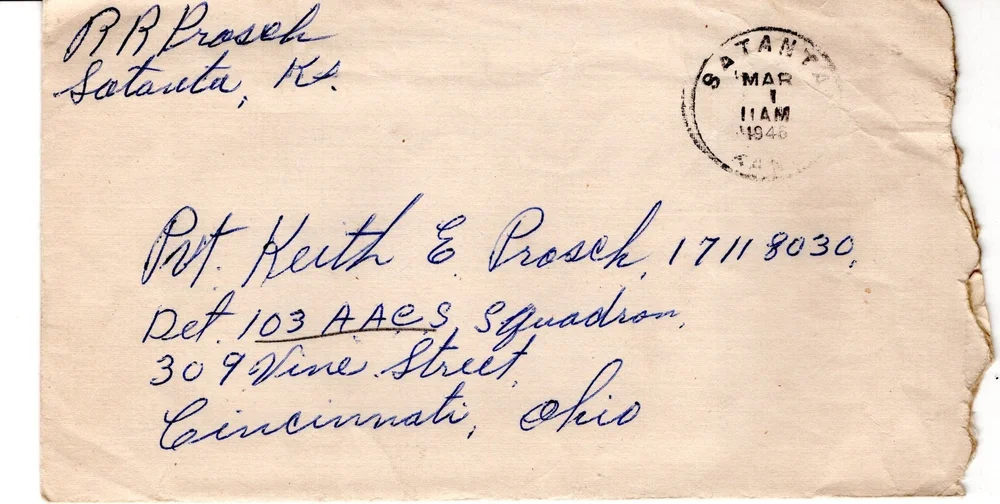 R R Prosch
Satanta, Ks.
SATANTA
MAR
1
11AM
1946
KANS
Pvt. Keith E. Prosch, 17118030,
Det. 103 AACS, Squadron,
309 Vine Street,
Cincinnati, Ohio